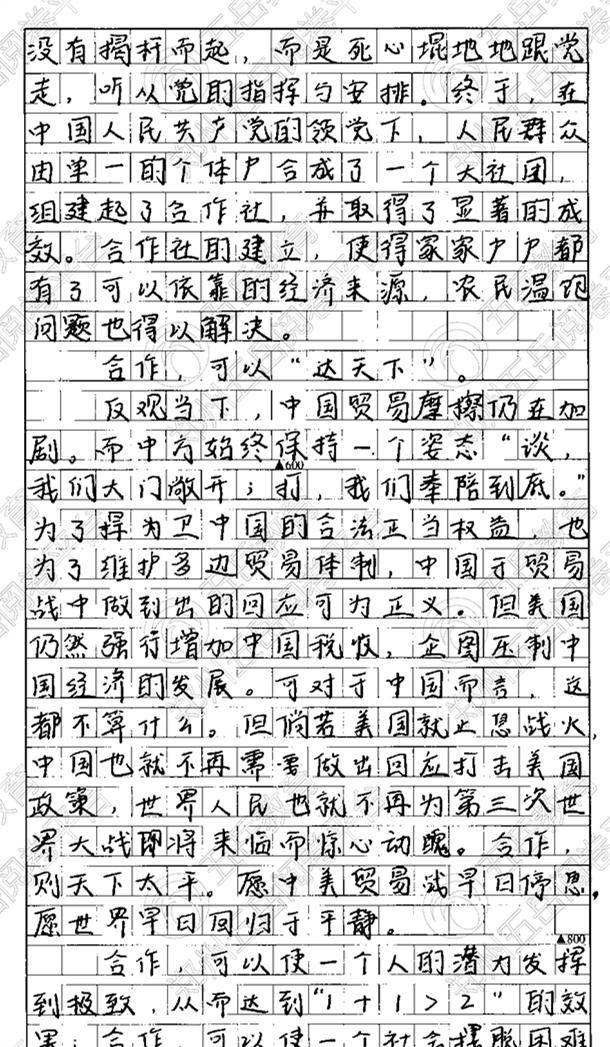 没有揭杆而起，而是死心塌地地跟党
走，听从党的指挥与安排。终于，在
中国人民共产党的领党下，人民群众
由单一的个体户合成了一个大社团，
组建起了合作社，并取得了显著的成
效。合作社的建立，使得家家户户都
有了可以依靠的经济来源，农民温饱
问题也得以解决。
合作，可以“达天下”。
反观当下，中国贸易摩擦仍在加
剧。而中方始终保持一个姿态“谈，
▲600
我们大门敞开；打，我们奉陪到底。”
为了捍为卫中国的合法正当权益，也
为了维护多边贸易体制，中国于贸易
战中做到出的回应可为正义。但美国
仍然强行增加中国税收，企图压制中
国经济的发展。可对于中国而言，这
都不算什么。但倘若美国就止息战火，
中国也就不再需要做出回应打击美国
政策，世界人民也就不再为第三次世
界大战即将来临而惊心动魄。合作，
则天下太平。愿中美贸易战早日停息，
愿世界早日回归于平静。
▲800
合作，可以使一个人的潜力发挥
到极致，从而达到“1＋1＞2”的效
果；合作，可以使一个社会摆脱困难